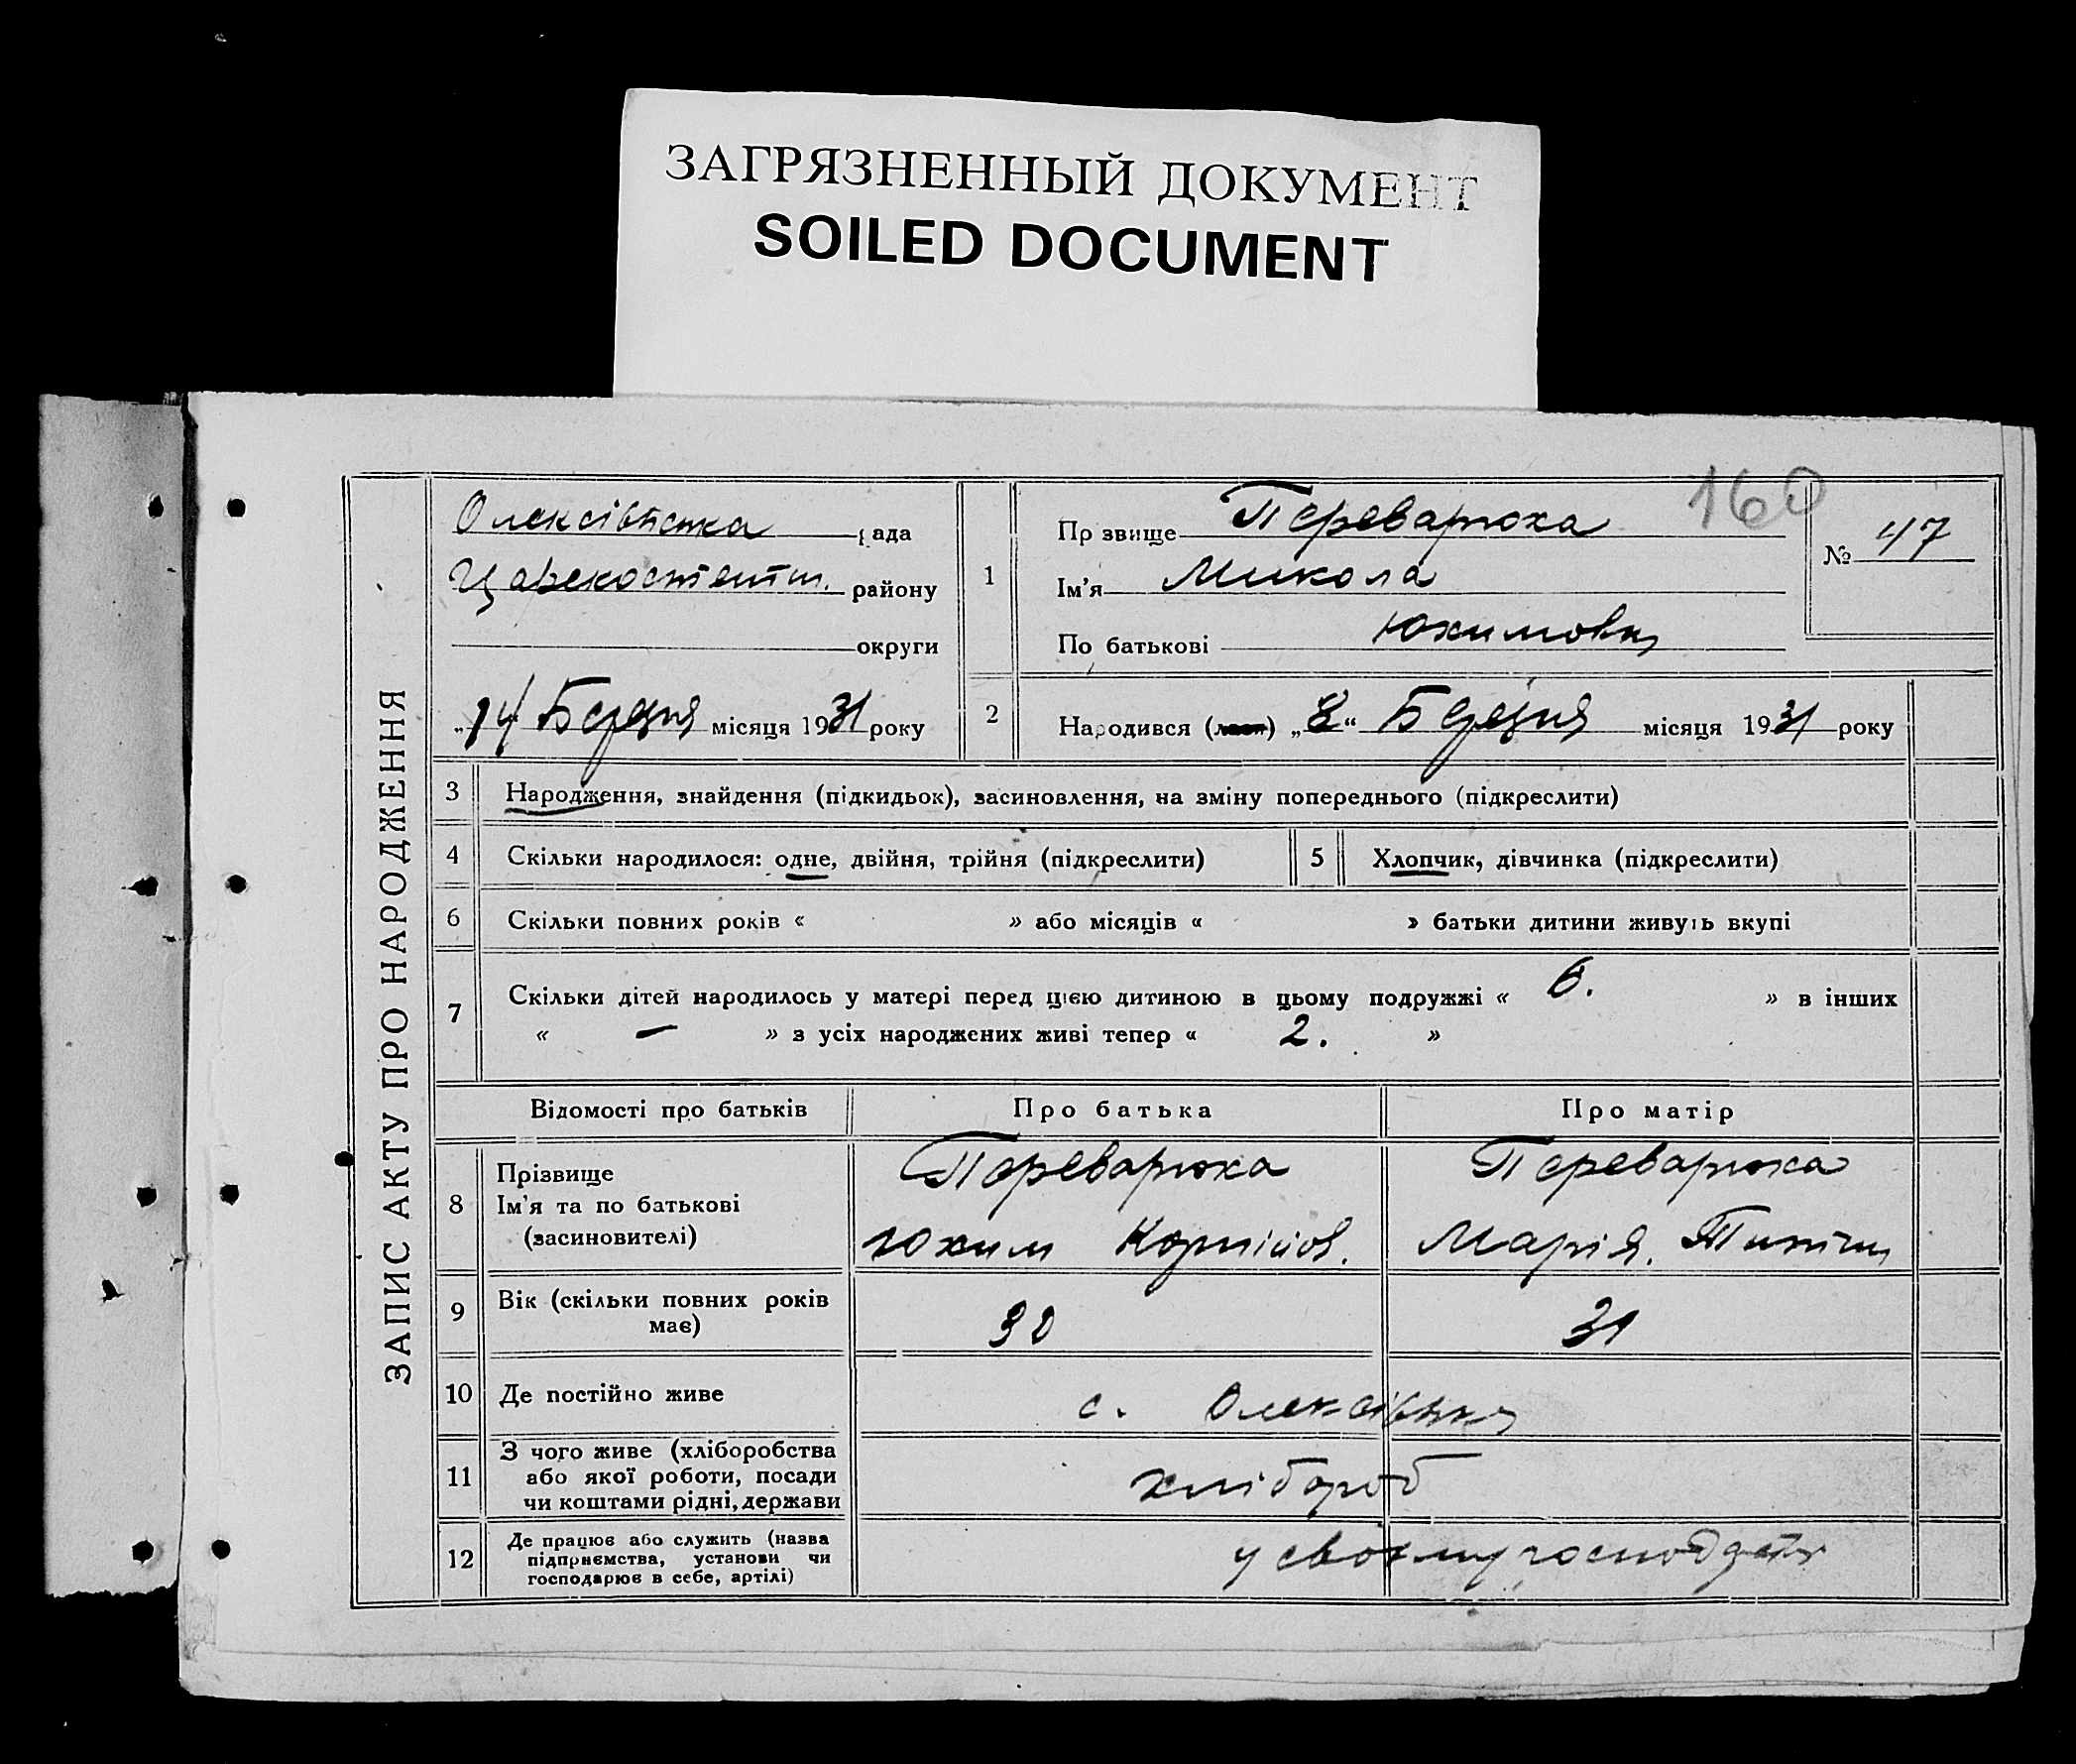 ЗАГРЯЗНЕННЫЙ ДОКУМЕНТ
SOILED DOCUMENT
160
ЗАПИС АКТУ ПРО НАРОДЖЕННЯ
Олексівська рада
Царекостент. району
округи
„14 Березня місяця 1931 року
1
Прізвище Переварюха
Ім'я Микола
По батькові Юхимович
№ 47
2 Народився (лась) „8“ Березня місяця 1931 року
3 Народження, знайдення (підкидьок), засиновлення, на зміну попереднього (підкреслити)
4 Скільки народилося: одне, двійня, трійня (підкреслити) 5 Хлопчик, дівчинка (підкреслити)
6 Скільки повних років « » або місяців « » батьки дитини живуть вкупі
7 Скільки дітей народилось у матері перед цією дитиною в цьому подружжі « 6. » в інших
« – » з усіх народжених живі тепер « 2. »
Відомості про батьків Про батька Про матір
8 Прізвище Переварюха Переварюха
Ім'я та по батькові
(засиновителі) Юхим Корнійов. Марія
9 Вік (скільки повних років
має) 30 31
10 Де постійно живе с. Олексівка
11 З чого живе (хліборобства
або якої роботи, посади
чи коштами рідні, держави хлібороб
12 Де працює або служить (назва
підприємства, установи чи
господарює в себе, артілі) у своєму